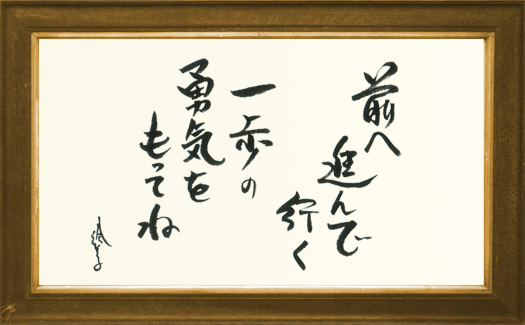 前へ
進んで
行く
一歩の
勇気を
もってね